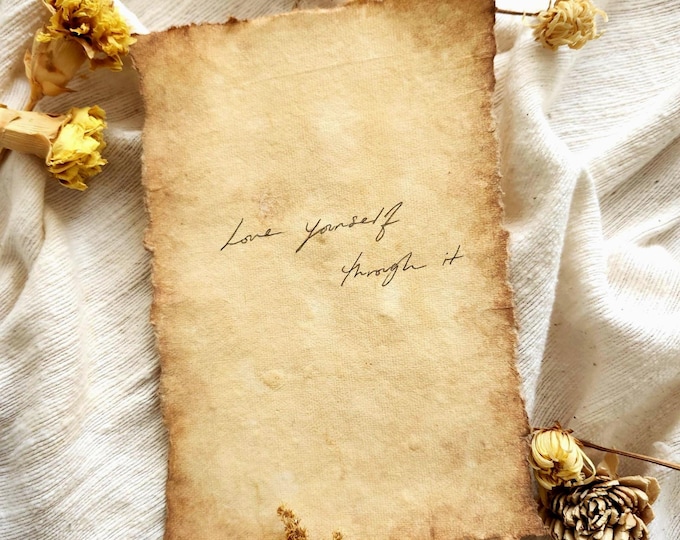 Love yourself
through it